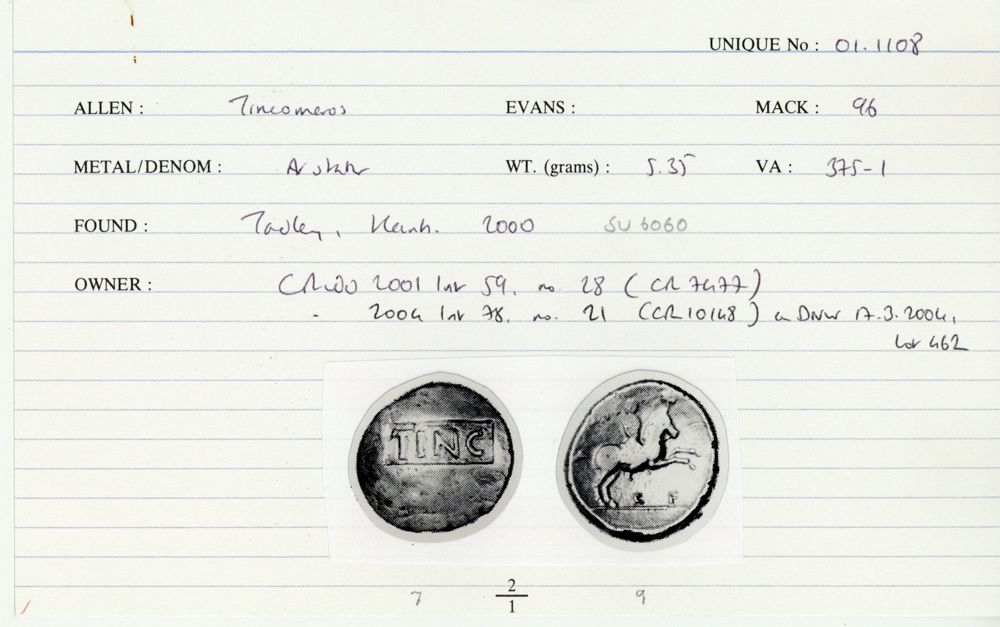 UNIQUE No : 01.1108
ALLEN : Tincomeros EVANS : MACK : 96
METAL/DENOM : AV stater WT. (grams) : 5.35 VA : 375-1
FOUND : Tadley, Hants. 2000 SU 6060
OWNER : 2001 List 59, no. 28 (CR 7477)
- 2004 List 78, no. 21 (CR 10148) DNW 17.3.2004,
lot 462
TINC
C F
7 2/1 9